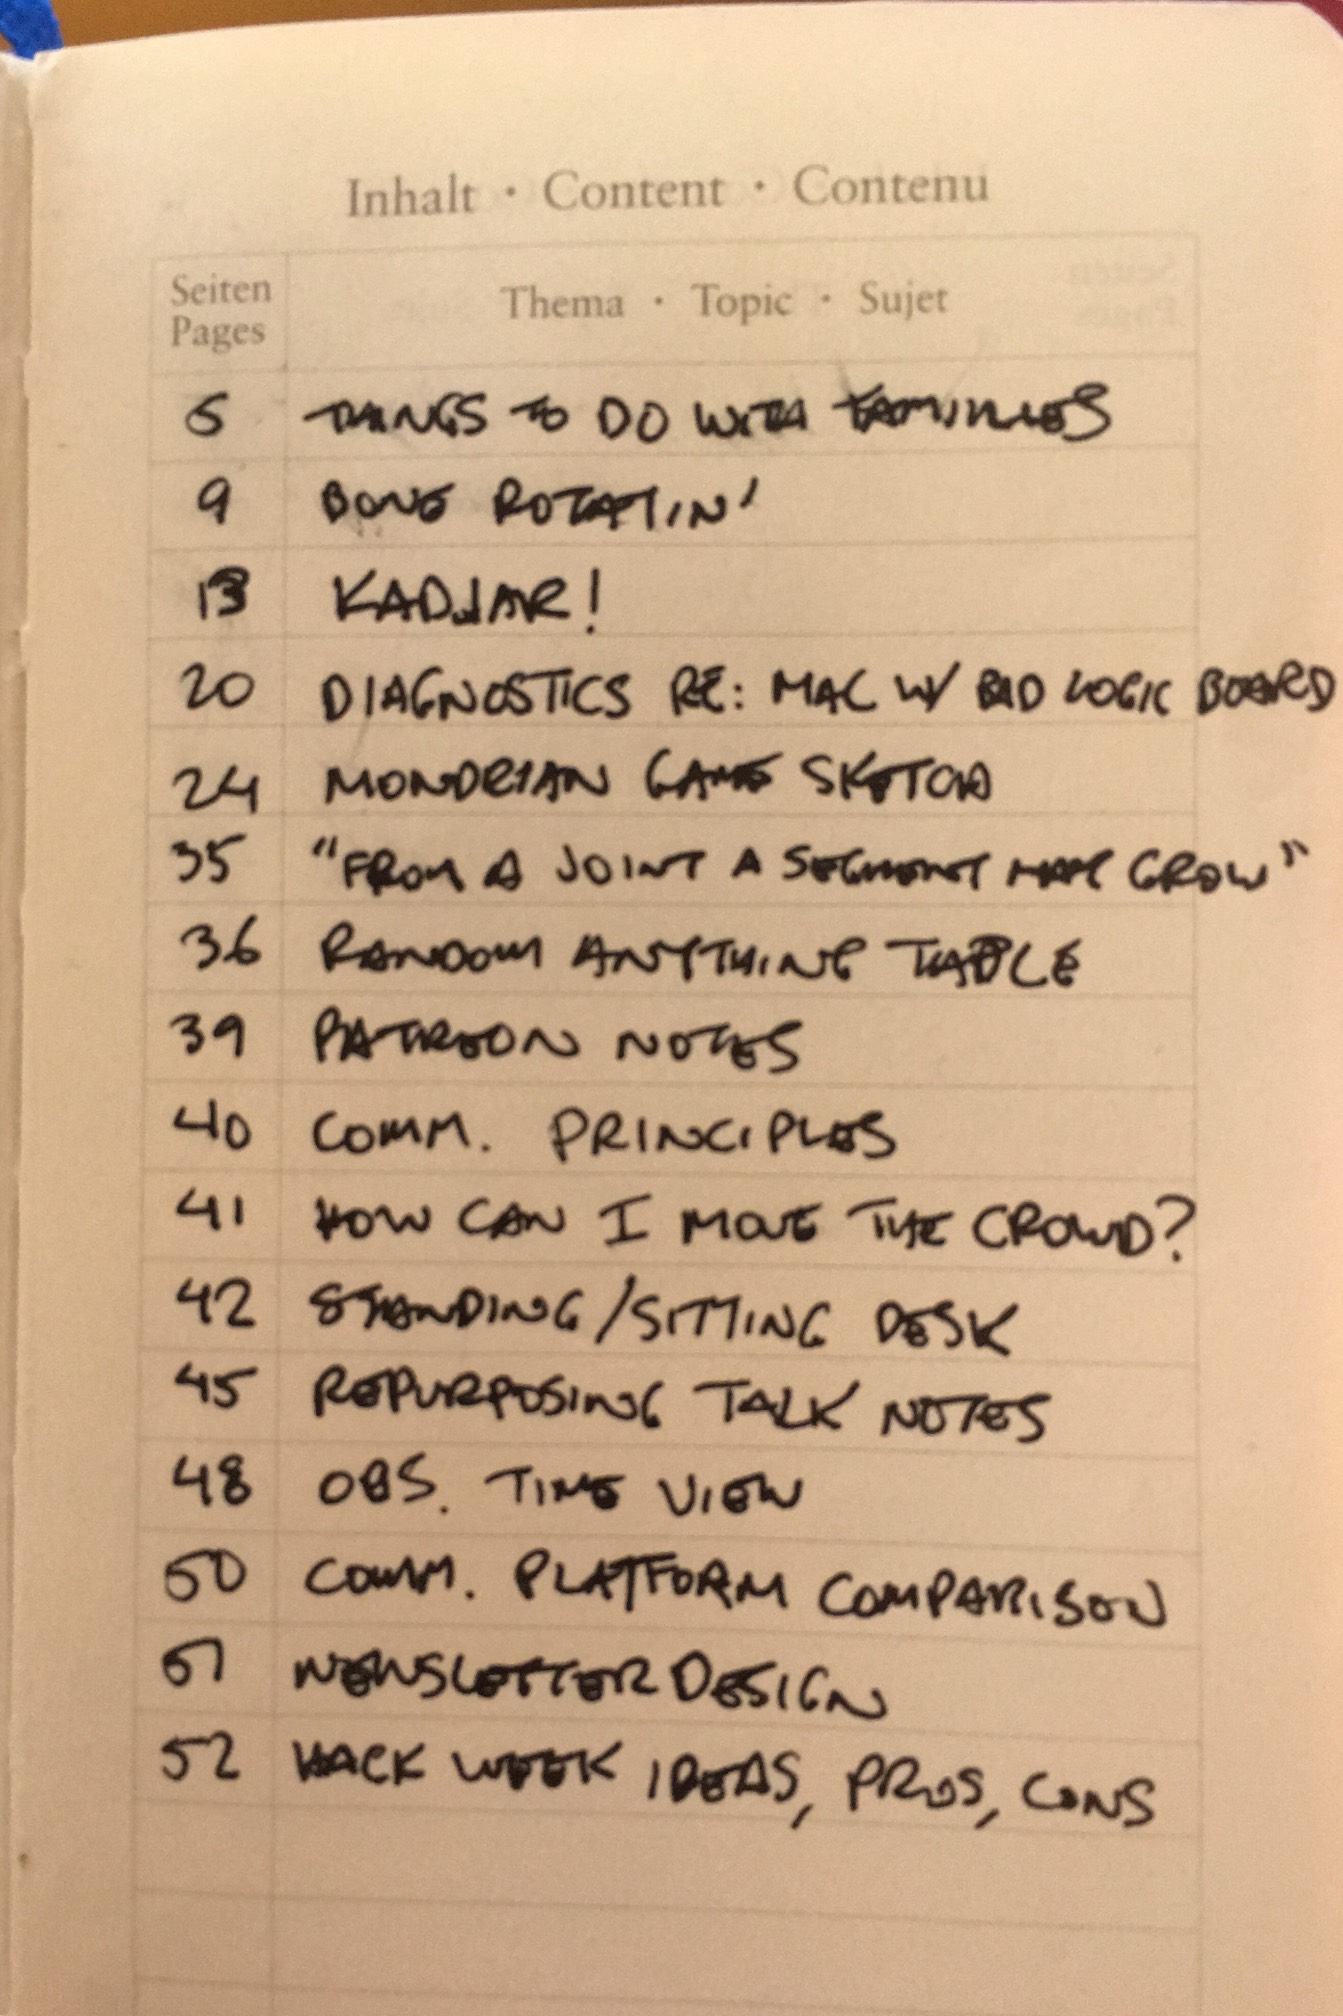 Inhalt · Content · Contenu
Seiten Pages Thema · Topic · Sujet
5 THINGS TO DO WITH FAMILIES
9 BONE ROTATIN'
13 KADJAR!
20 DIAGNOSTICS RE: MAC W/ BAD LOGIC BOARD
24 MONDRIAN GAME SKETCH
35 "FROM A JOINT A SEGMENT MAY GROW"
36 RANDOM ANYTHING TABLE
39 PATREON NOTES
40 COMM. PRINCIPLES
41 HOW CAN I MOVE THE CROWD?
42 STANDING/SITTING DESK
45 REPURPOSING TALK NOTES
48 OBS. TIME VIEW
50 COMM. PLATFORM COMPARISON
51 NEWSLETTER DESIGN
52 HACK WEEK IDEAS, PROS, CONS